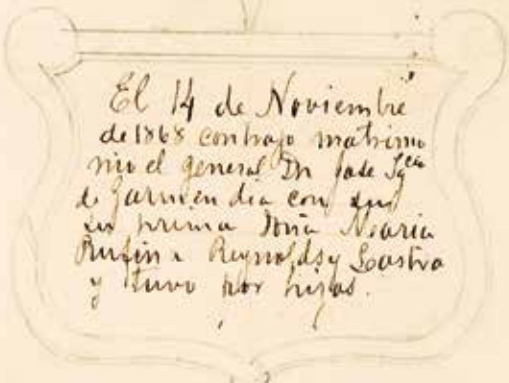 El 14 de Noviembre
de 1868 contrajo matrimo
nio el general Dn Jose Igco
de Garmendia con
su prima Doña Maria
Rufina Reynolds y Castro
y tuvo por hijos.